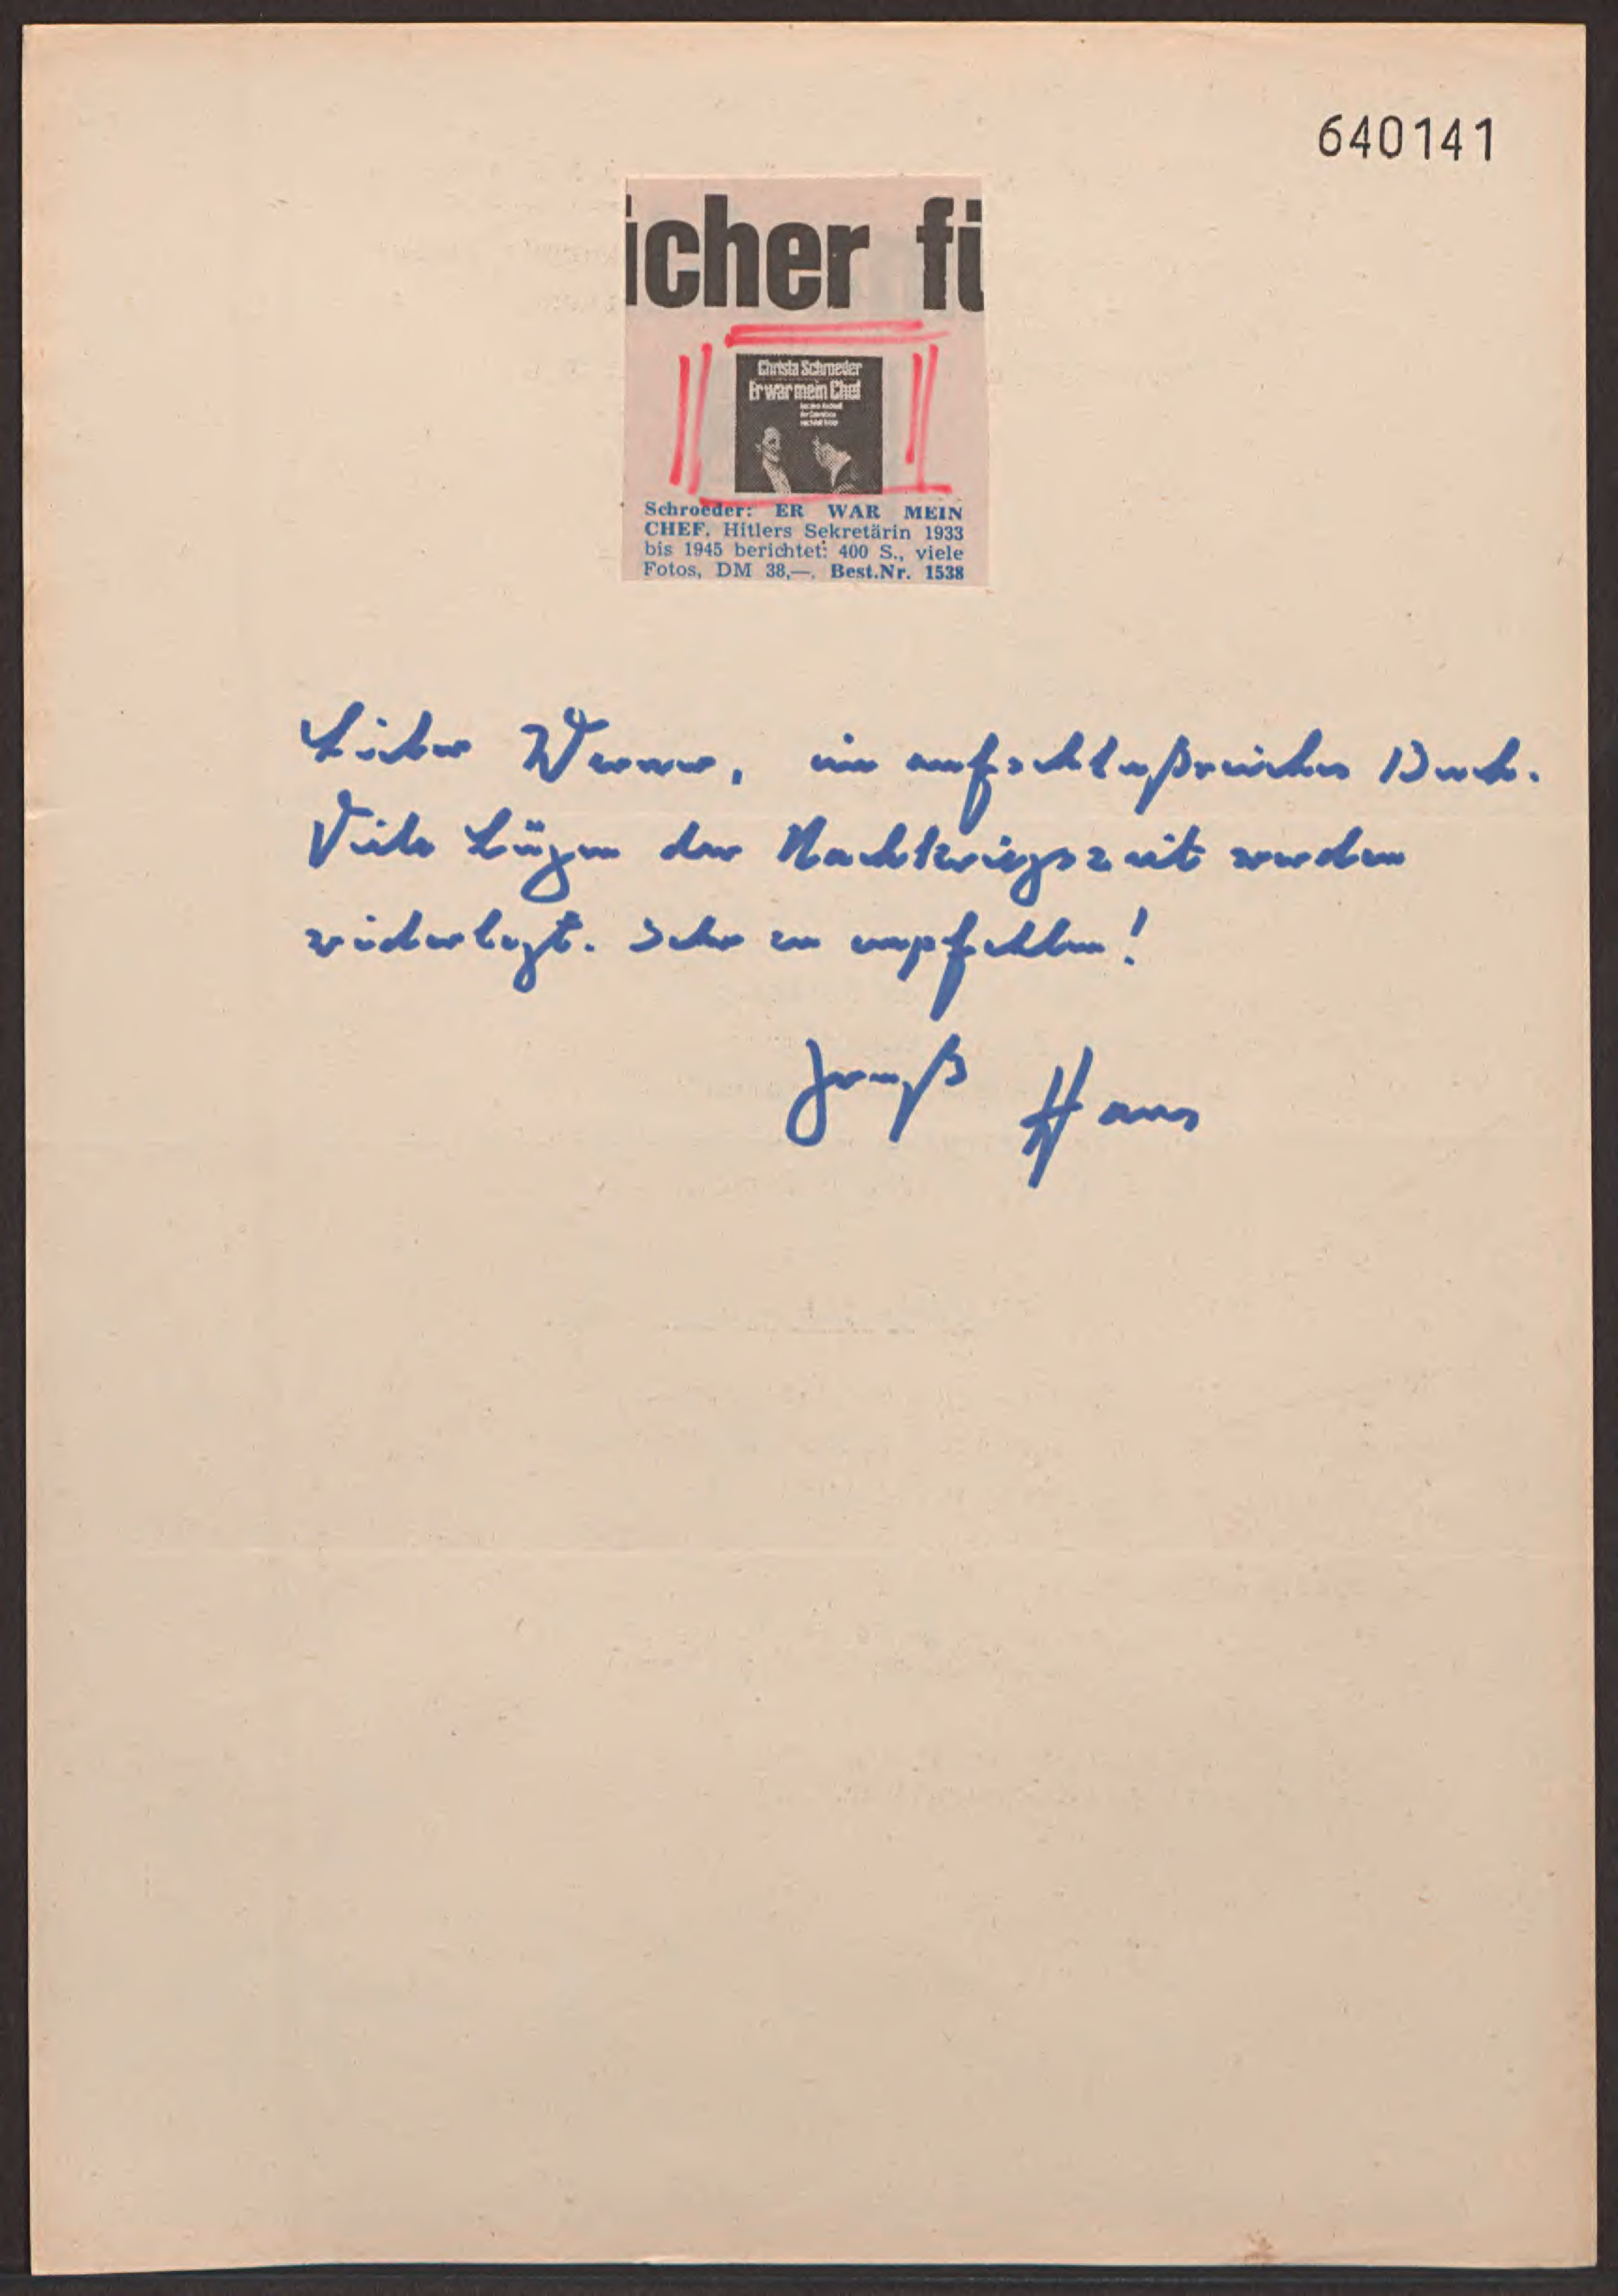 640141
icher fü
Christa Schroeder
Er war mein Chef
Schroeder: ER WAR MEIN
CHEF. Hitlers Sekretärin 1933
bis 1945 berichtet: 400 S., viele
Fotos, DM 38,—. Best.Nr. 1538
Lieber Werner, ein aufschlußreiches Buch.
Viele Lügen der Nachkriegszeit werden
widerlegt. Sehr zu empfehlen!
Gruß Hans